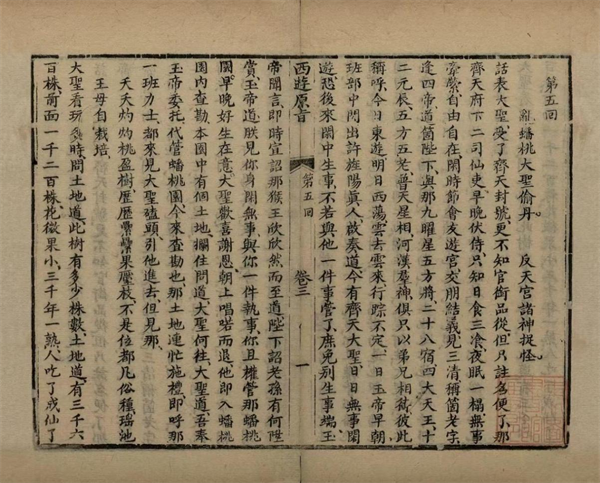 第五回
亂蟠桃大聖偷丹　反天宮諸神捉怪
話表大聖受了齊天封號更不知官銜品從但只註名便了那
齊天府下二司仙吏早晚伏侍只知日食三飡夜眠一榻無事
牽縈自由自在閑時節會友遊宮交朋結義見三清稱箇老字
逢四帝道箇陛下與那九曜星五方將二十八宿四大天王十
二元辰五方五老普天星相河漢羣神俱只以弟兄相待彼此
稱呼今日東遊明日西蕩雲去雲來行踪不定一日玉帝早朝
班部中閃出許旌陽眞人啟奏道今有齊天大聖日日無事閑
遊恐後來閑中生事不若與他一件事管了庶免別生事端玉
西遊原音
第五回
卷三
一
帝聞言即時宣詔那猴王欣欣然而至道陛下詔老孫有何陞
賞玉帝道朕見你身閑無事與你一件執事你且權管那蟠桃
園早晚好生在意大聖歡喜謝恩朝上唱喏而退他即入蟠桃
園內查勘本園中有個土地攔住問道大聖何往大聖道吾奉
玉帝委托代管蟠桃園今來查勘也那土地連忙施禮即呼那
一班力士都來見大聖磕頭引他進去但見那
夭夭灼灼桃盈樹歷歷纍纍果壓枝不是位都凡俗種瑤池
王母自栽培
大聖看玩多時問土地道此樹有多少株數土地道有三千六
百株前面一千二百株花微果小三千年一熟人吃了成仙了